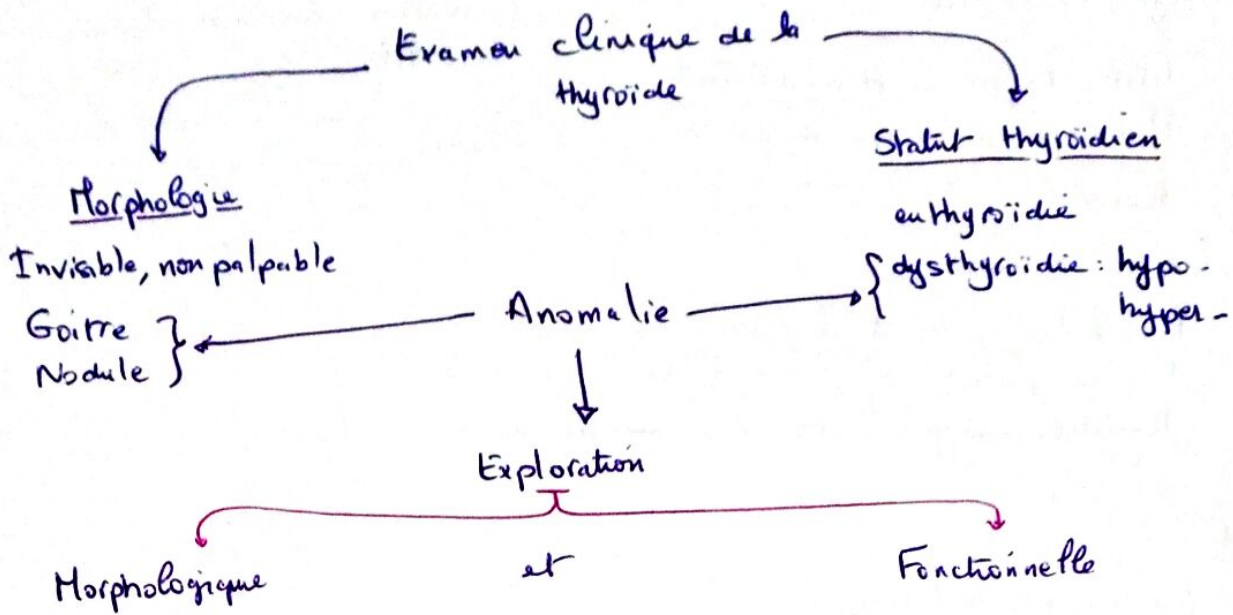 Examen clinique de la
thyroïde
Morphologie
Invisible, non palpable
Goitre
Nodule
Statut thyroïdien
euthyroïdie
dysthyroïdie : hypo-
hyper-
Anomalie
Exploration
Morphologique et Fonctionnelle